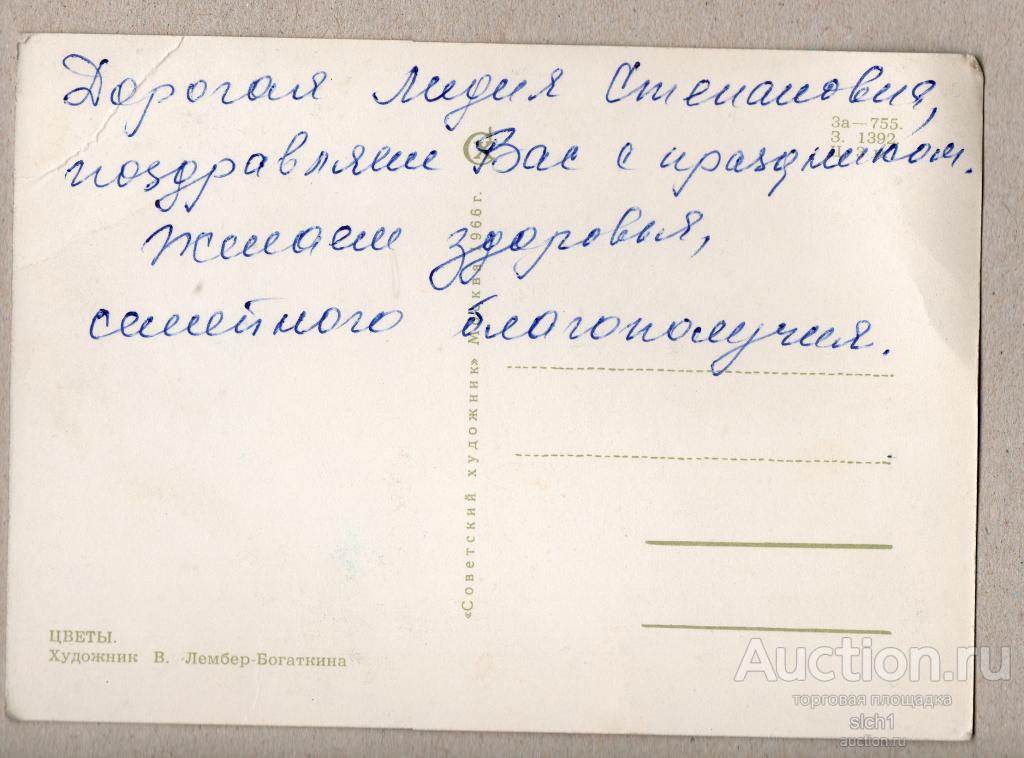 Дорогая Лидия Степановна,
поздравляем Вас с праздником.
Желаем здоровья,
семейного благополучия.
За—755.
З. 1392
«Советский художник» Москва 1966 г.
ЦВЕТЫ.
Художник В. Лембер-Богаткина
Auction.ru
торговая площадка
slch1
auction.ru